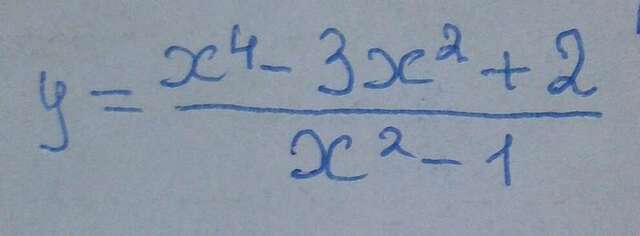 y = \frac{x^4 - 3x^2 + 2}{x^2 - 1}